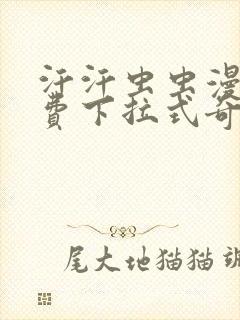 汗汗虫虫漫
费下拉式奇
尾大地猫猫